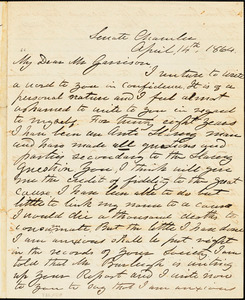 Senate Chamber
April 14th, 1864.
My Dear Mr Garrison,
I venture to write
a word to you in confidence. It is of a
personal nature and I feel almost
ashamed to write to you in regard
to myself. For twenty eight years
I have been an Anti Slavery man
and have made all questions and
parties secondary to the Slavery
question. You, I think will give
me the credit of fidelity to the great
cause. I have been able to do but
little to link my name to a cause
I would die a thousand deaths to
consummate. But the little I have done
I am anxious shall be put right
in the records of your Society. I am
told that Mr is writing
up your Report and I write now
to you to say that I am anxious